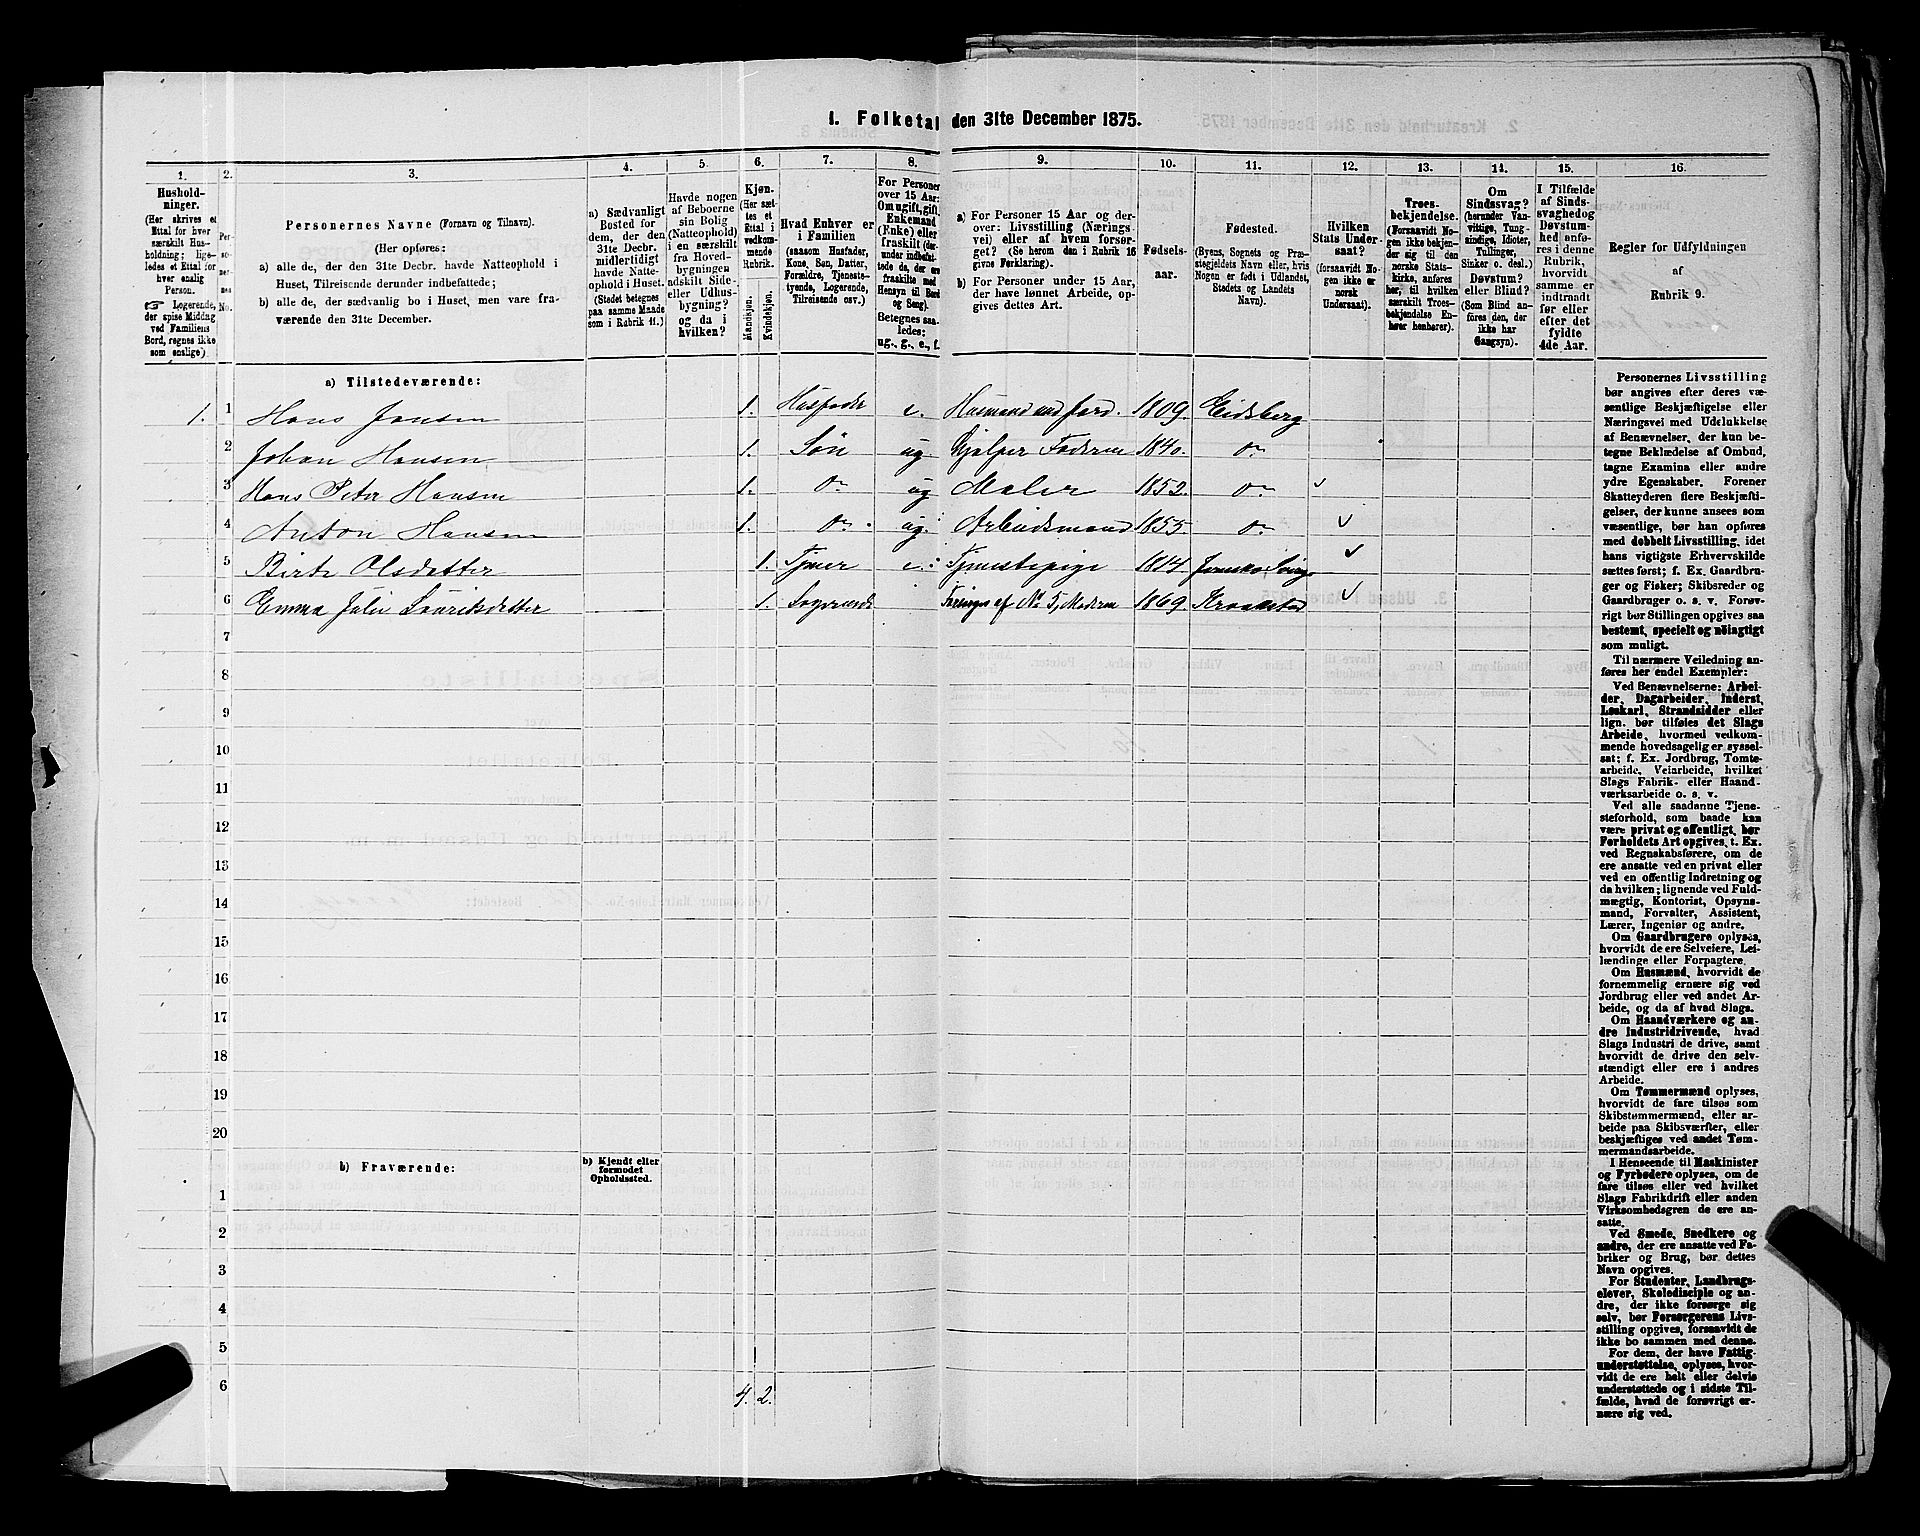 1. Folketal den 31te December 1875.
1. 2. 3. 4. 5. 6. 7. 8. 9. 10. 11. 12. 13. 14. 15. 16.
Hushold-
ninger.
(Her skrives et
Ettal for hver
særskilt Hus-
holdning; lige-
ledes et Ettal for
hver enslig
Person.
☞ Logerende,
der spise Middag
ved Familiens
Bord, regnes ikke
som enslige)
Per-
so-
ner-
nes
No.
Personernes Navne (Fornavn og Tilnavn).
(Her opføres:
a) alle de, der den 31te Decbr. havde Natteophold i
Huset, Tilreisende derunder indbefattede;
b) alle de, der sædvanlig bo i Huset, men vare fra-
værende den 31te December.
a) Sædvanligt
Bosted for
dem, der den
31te Decbr.
midlertidigt
havde Natte-
ophold i Huset.
(Stedet betegnes
paa samme Maade
som i Rubrik 11.)
Havde nogen
af Beboerne
sin Bolig
(Natteophold)
i en særskilt
fra Hoved-
bygningen
adskilt Side-
eller Udhus-
bygning?
og da i
hvilken?
Kjøn.
(Her sæt-
tes et
Ettal i
vedkom-
mende
Rubrik.
Mandskjøn.
Kvindekjøn.
Hvad Enhver er
i Familien
(saasom Husfader,
Kone, Søn, Datter,
Forældre, Tjeneste-
tyende, Logerende,
Tilreisende osv.)
For Personer
over 15 Aar:
Om ugift, gift,
Enkemand
(Enke) eller
fraskilt (der-
under indbefat-
tede de, der ere
fraskilte med
Hensyn til Bord
og Seng).
Betegnes saa-
ledes:
ug., g., e., f.
a) For Personer 15 Aar og der-
over: Livsstilling (Nærings-
vei) eller af hvem forsør-
get? (Se herom den i Rubrik 16
givne Forklaring).
b) For Personer under 15 Aar,
der have lønnet Arbeide, op-
gives dettes Art.
Fødsels-
aar.
Fødested.
(Byens, Sognets og Præ-
stegjeldets Navn eller, hvis
Nogen er født i Udlandet,
Stedets og Landets
Navn).
Hvilken
Stats Under-
saat?
(forsaavidt No-
gen ikke er
norsk
Undersaat).
Troes-
bekjendelse.
(Forsaavidt No-
gen ikke bekjen-
der sig til den
norske Stats-
kirke, anføres
her, til hvilken
særskilt Troes-
bekjendelse En-
hver henhører).
Om
Sindssvag?
(herunder Van-
vittige, Tung-
sindige, Idioter,
Tullinger,
Sinker o. desl.)
Døvstum?
eller Blind?
(Som Blind an-
føres den, der
ikke har
Gangsyn).
I Tilfælde
af Sinds-
svaghed og
Døvstum-
hed anfø-
res i denne
Rubrik,
hvorvidt
samme er
indtraadt
før eller
efter det
fyldte
4de Aar.
Regler for Udfyldningen
af
Rubrik 9.
a) Tilstedeværende:
1. 1 Hans Jansen 1. Husfader e. Husmand med Jord. 1809. Eidsberg
2 Johan Hansen 1. Søn ug Hjælper Faderen 1840. do
3 Hans Peter Hansen 1. do ug Maler 1852. do
4 Anton Hansen 1. do ug. Arbeidsmand 1855 do
5 Birte Olsdatter 1. Tjener e. Tjenestepige 1814
6 Emma Julie Lauritsdatter 1. Logerende Forsørges af No 5, Moderen 1869 Kraakstad
7
8
9
10
11
12
13
14
15
16
17
18
19
20
b) Fraværende:
b) Kjendt eller
formodet
Opholdssted.
1
2
3
4
5
6 4. 2.
Personernes Livsstilling
bør angives efter deres væ-
sentlige Beskjæftigelse eller
Næringsvei med Udelukkelse
af Benævnelser, der kun be-
tegne Beklædelse af Ombud,
tagne Examina eller andre
ydre Egenskaber. Forener
Skatteyderen flere Beskjæfti-
gelser, der kunne ansees som
væsentlige, bør han opføres
med dobbelt Livsstilling, idet
hans vigtigste Erhvervskilde
sættes først; f. Ex. Gaardbru-
ger og Fisker; Skibsreder og
Gaardbruger o. s. v. Forøv-
rigt bør Stillingen opgives saa
bestemt, specielt og nöiagtigt
som muligt.
Til nærmere Veiledning an-
føres her endel Exempler:
Ved Benævnelserne: Arbei-
der, Dagarbeider, Inderst,
Løskarl, Strandsidder eller
lign. bør tilføies det Slags
Arbeide, hvormed vedkom-
mende hovedsagelig er syssel-
sat; f. Ex. Jordbrug, Tomte-
arbeide, Veiarbeide, hvilket
Slags Fabrik- eller Haand-
værksarbeide o. s. v.
Ved alle saadanne Tjene-
steforhold, som baade kan
være privat og offentligt, bør
Forholdets Art opgives, t. Ex.
ved Regnskabsførere, om de
ere ansatte ved en privat eller
ved en offentlig Indretning og
da hvilken; lignende ved Fuld-
mægtig, Kontorist, Opsyns-
mand, Forvalter, Assistent,
Lærer, Ingeniør og andre.
Om Gaardbrugere oplyses,
hvorvidt de ere Selveiere, Lei-
lændinge eller Forpagtere.
Om Husmænd, hvorvidt de
fornemmelig ernære sig ved
Jordbrug eller ved andet Ar-
beide, og da af hvad Slags.
Om Haandværkere og an-
dre Industridrivende, hvad
Slags Industri de drive, samt
hvorvidt de drive den selv-
stændigt eller ere i andres
Arbeide.
Om Tømmermænd oplyses,
hvorvidt de fare tilsøs som
Skibstømmermænd, eller ar-
beide paa Skibsværfter, eller
beskjæftiges ved andet Tøm-
mermandsarbeide.
I Henseende til Maskinister
og Fyrbødere oplyses, om de
fare tilsøs eller ved hvilket
Slags Fabrikdrift eller anden
Virksomhedsgren de ere an-
satte.
Ved Smede, Snedkere og
andre, der ere ansatte ved Fa-
briker og Brug, bør dettes
Navn opgives.
For Studenter, Landbrugs-
elever, Skoledisciple og an-
dre, der ikke forsørge sig
selv, bør Forsørgerens Livs-
stilling opgives, forsaavidt de
ikke bo sammen med denne.
For dem, der have Fattig-
understøttelse, oplyses, hvor-
vidt de ere helt eller delvis
understøttede og i sidste Til-
fælde, hvad de forøvrigt er-
nære sig ved.